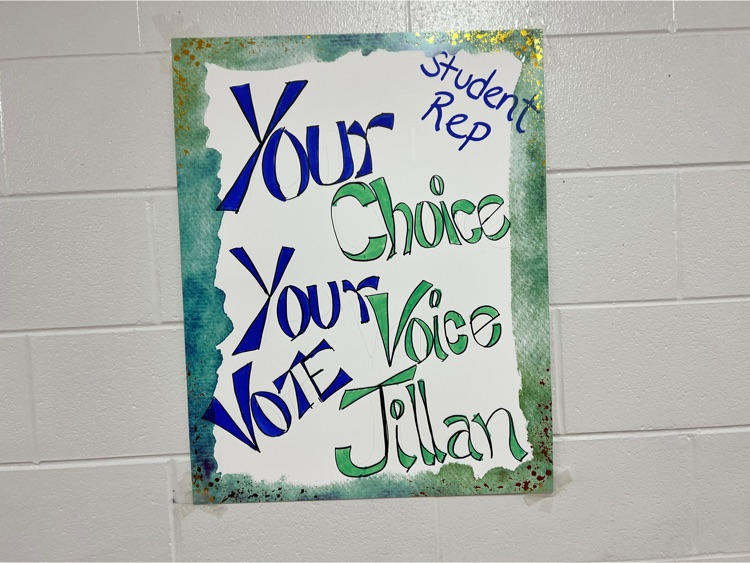 Student
Rep
Your
Choice
Your
Voice
VOTE
Jillan